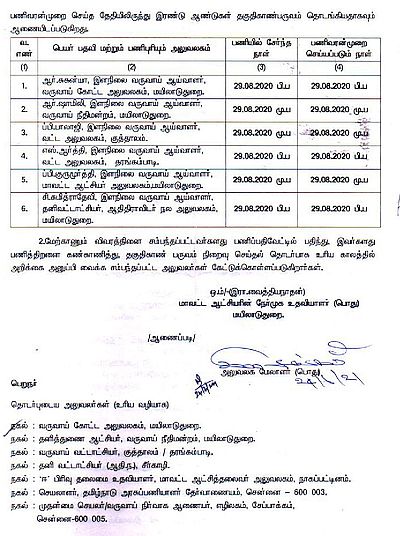 பணிவரன்முறை செய்த தேதியிலிருந்து இரண்டு ஆண்டுகள் தகுதிகாண்பருவம் தொடங்கியதாகவும்
ஆணையிடப்படுகிறது.
வ. எண் பெயர் பதவி மற்றும் பணிபுரியும் அலுவலகம் பணியில் சேர்ந்த நாள் பணிவரன்முறை செய்யப்படும் நாள்
(1) (2) (3) (4)
1. ஆர்.சுகன்யா, இளநிலை வருவாய் ஆய்வாளர், 29.08.2020 பி.ப 29.08.2020 பி.ப
வருவாய் கோட்ட அலுவலகம், மயிலாடுதுறை.
2. ஆர்.ஷாமிலி, இளநிலை வருவாய் ஆய்வாளர், 29.08.2020 மு.ப 29.08.2020 மு.ப
வருவாய் நீதிமன்றம், மயிலாடுதுறை.
3. ப்பி.பாலாஜி, இளநிலை வருவாய் ஆய்வாளர், 29.08.2020 மு.ப 29.08.2020 மு.ப
வட்ட அலுவலகம், குத்தாலம்.
4. எஸ்.ஆர்த்தி, இளநிலை வருவாய் ஆய்வாளர், 29.08.2020 பி.ப 29.08.2020 பி.ப
வட்ட அலுவலகம், தரங்கம்பாடி.
5. ப்பி.குருமூர்த்தி, இளநிலை வருவாய் ஆய்வாளர், 29.08.2020 பி.ப 29.08.2020 பி.ப
மாவட்ட ஆட்சியர் அலுவலகம்,மயிலாடுதுறை.
6. சி.சுமித்ராதேவி, இளநிலை வருவாய் ஆய்வாளர், 29.08.2020 பி.ப 29.08.2020 பி.ப
தனிவட்டாட்சியர், ஆதிதிராவிடர் நல அலுவலகம்,
மயிலாடுதுறை.
2.மேற்காணும் விவரத்தினை சம்பந்தப்பட்டவர்களது பணிப்பதிவேட்டில் பதிந்து, இவர்களது
பணித்திறனை கண்காணித்து, தகுதிகாண் பருவம் நிறைவு செய்தல் தொடர்பாக உரிய காலத்தில்
அறிக்கை அனுப்பி வைக்க சம்பந்தப்பட்ட அலுவலர்கள் கேட்டுக்கொள்ளப்படுகிறார்கள்.
ஒ.ம்/-(இரா.வைத்தியநாதன்)
மாவட்ட ஆட்சியரின் நேர்முக உதவியாளர் (பொது)
மயிலாடுதுறை.
/ஆணைப்படி/
அலுவலக மேலாளர் (பொது)
24/6/21
பெறுநர்
தொடர்புடைய அலுவலர்கள் (உரிய வழியாக)
நகல் : வருவாய் கோட்ட அலுவலகம், மயிலாடுதுறை.
நகல் : தனித்துணை ஆட்சியர், வருவாய் நீதிமன்றம், மயிலாடுதுறை.
நகல் : வருவாய் வட்டாட்சியர், குத்தாலம் / தரங்கம்பாடி.
நகல் : தனி வட்டாட்சியர் (ஆதி.ந), சீர்காழி.
நகல் : 'ஈ' பிரிவு தலைமை உதவியாளர், மாவட்ட ஆட்சித்தலைவர் அலுவலகம், நாகப்பட்டினம்.
நகல் : செயலாளர், தமிழ்நாடு அரசுப்பணியாளர் தேர்வாணையம், சென்னை – 600 003.
நகல் : முதன்மை செயலர்/வருவாய் நிர்வாக ஆணையர், எழிலகம், சேப்பாக்கம்,
சென்னை-600 005.